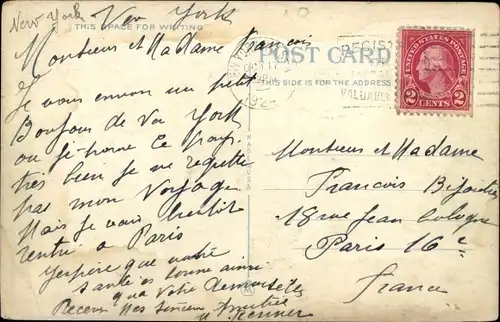 New York
Nev York
THIS SPACE FOR WRITING
Monsieur et Madame François
Je vous envoi un petit
Bonjour de Nev York
ou je trouve ce pays
très bien je ne regrette
pas mon Voyage
Mais je vais bientôt
rentré a Paris
J'espère que votre
Santé es bonne ainsi
qua Votre Demoiselle
Recever Mes Sincère Amitié
MADE IN U.S.A.
POST CARD
THIS SIDE IS FOR THE ADDRESS
REGIST
VALUABL
UNITED STATES POSTAGE
2 CENTS 2
Monsieur et Madame
François
18 rue Jean Cologne
Paris 16e
France